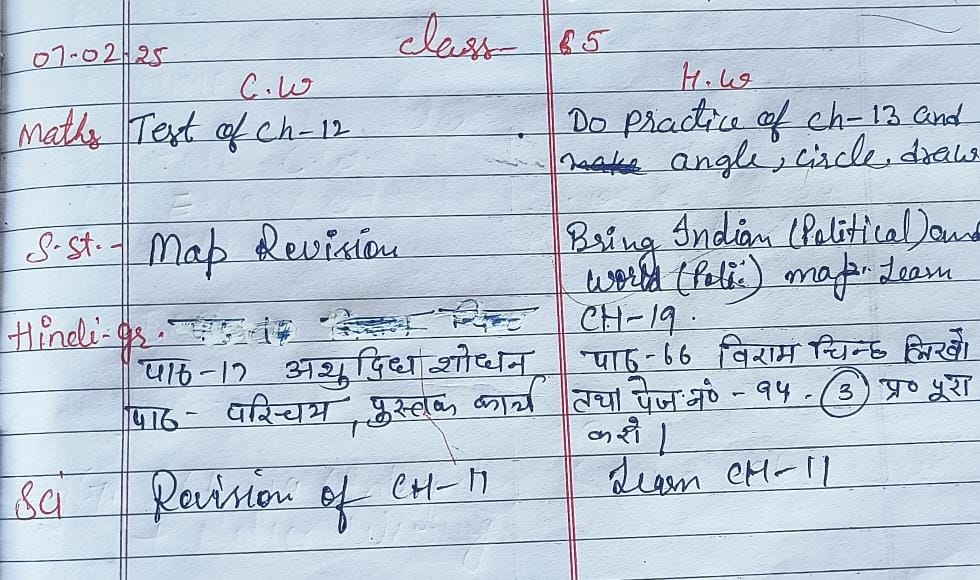 07-02-25 class- 5
C.W H.W
Maths Test of ch-12 Do practice of ch-13 and
angle, circle, draw
S.St.- Map Revision Bring Indian (Political) and
world (Poli:) map. Learn
Hindi-gr. CH-19.
पाठ-17 अशुद्धि शोधन पाठ-66 विराम चिन्ह लिखो
पाठ- परिचय, पुस्तक कार्य तथा पेज नं० - 94. 3 प्र० पूरा
करो।
Sci Revision of CH-11 Learn CH-11